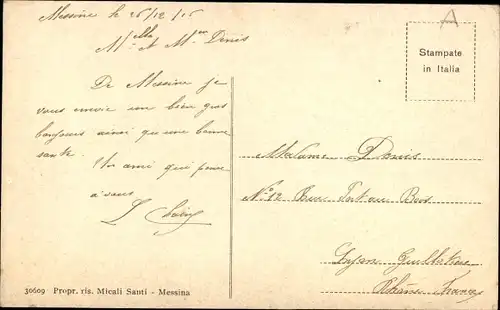 Messine le 26/12/16
Mlle et Mme Denis
De Messine je
vous envoie un bien gros
bonjours ainsi qu'une bonne
sante.
Un ami qui pense
a vous
A
Stampate
in Italia
Madame Denis
No 12 Rue Port au Bois
Rhône France
30609 Propr. ris. Micali Santi - Messina